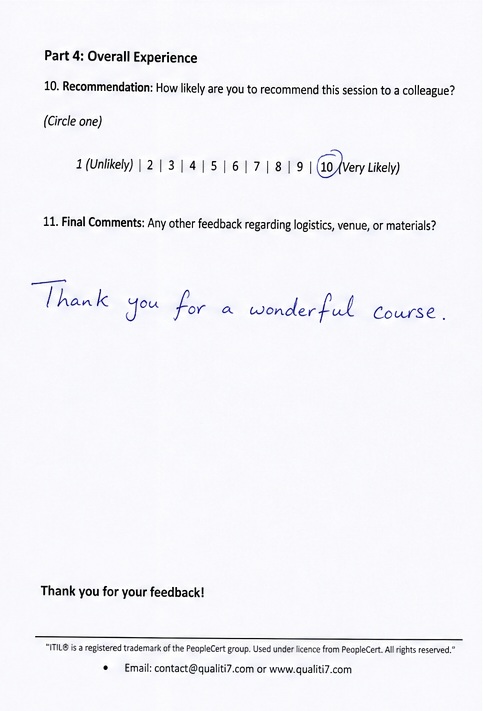 Part 4: Overall Experience
10. Recommendation: How likely are you to recommend this session to a colleague?
(Circle one)
1 (Unlikely) | 2 | 3 | 4 | 5 | 6 | 7 | 8 | 9 | 10 (Very Likely)
11. Final Comments: Any other feedback regarding logistics, venue, or materials?
Thank you for a wonderful course.
Thank you for your feedback!
"ITIL® is a registered trademark of the PeopleCert group. Used under licence from PeopleCert. All rights reserved."
• Email: contact@qualiti7.com or www.qualiti7.com